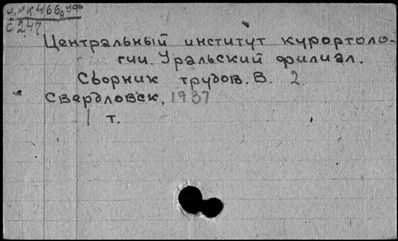 С247
Центральный институт курортоло-
гии. Уральский филиал.
Сборник трудов. В. 2
Свердловск, 1937
1 т.